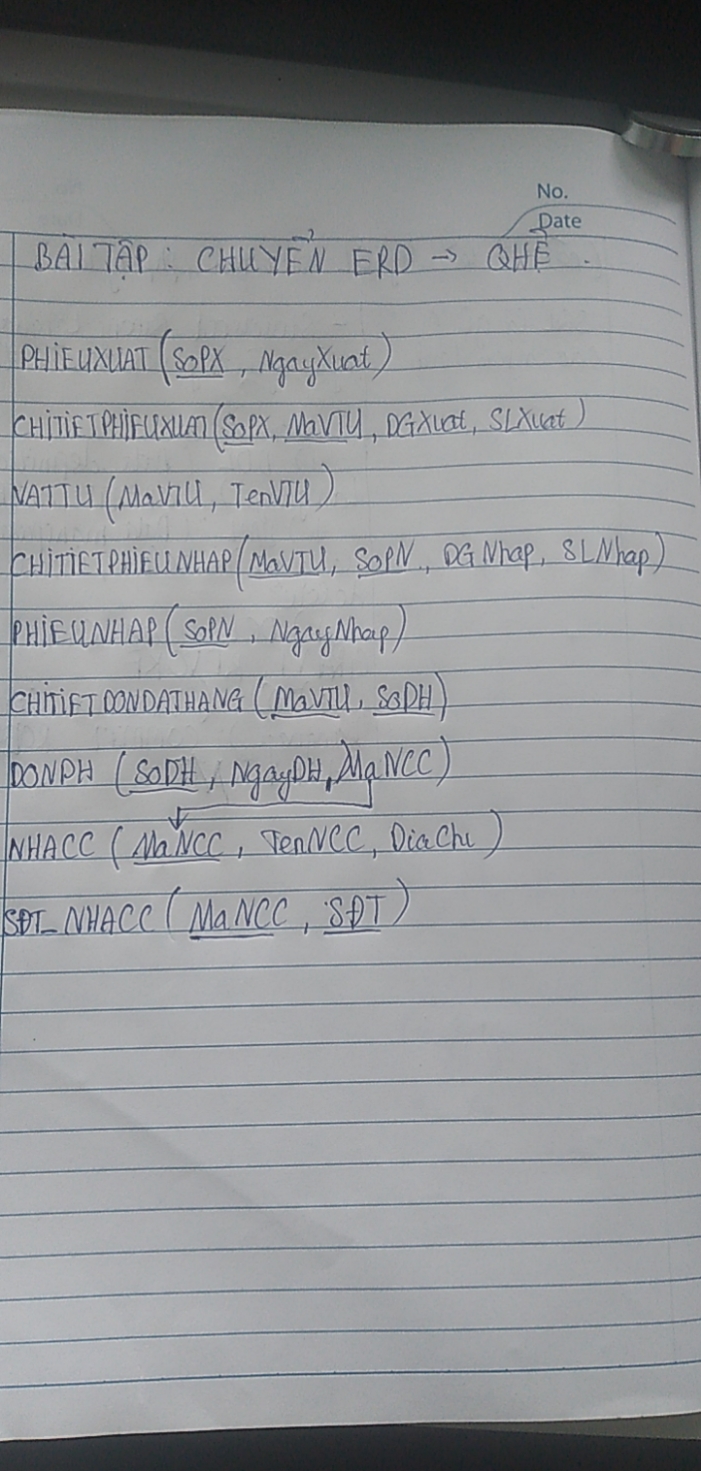 No.
Date
BÀI TẬP : CHUYỂN ERD → QHỆ.
PHIEUXUAT (SoPX, NgayXuat)
CHITIETPHIEUXUAT (SoPX, MaVTU, DGXuat, SLXuat)
VATTU (MaVTU, TenVTU)
CHITIETPHIEUNHAP (MaVTU, SoPN, DGNhap, SLNhap)
PHIEUNHAP (SoPN, NgayNhap)
CHITIETDONDATHANG (MaVTU, SoDH)
DONDH (SoDH, NgayDH, MaNCC)
NHACC (MaNCC, TenNCC, DiaChi)
SĐT_NHACC (MaNCC, SĐT)